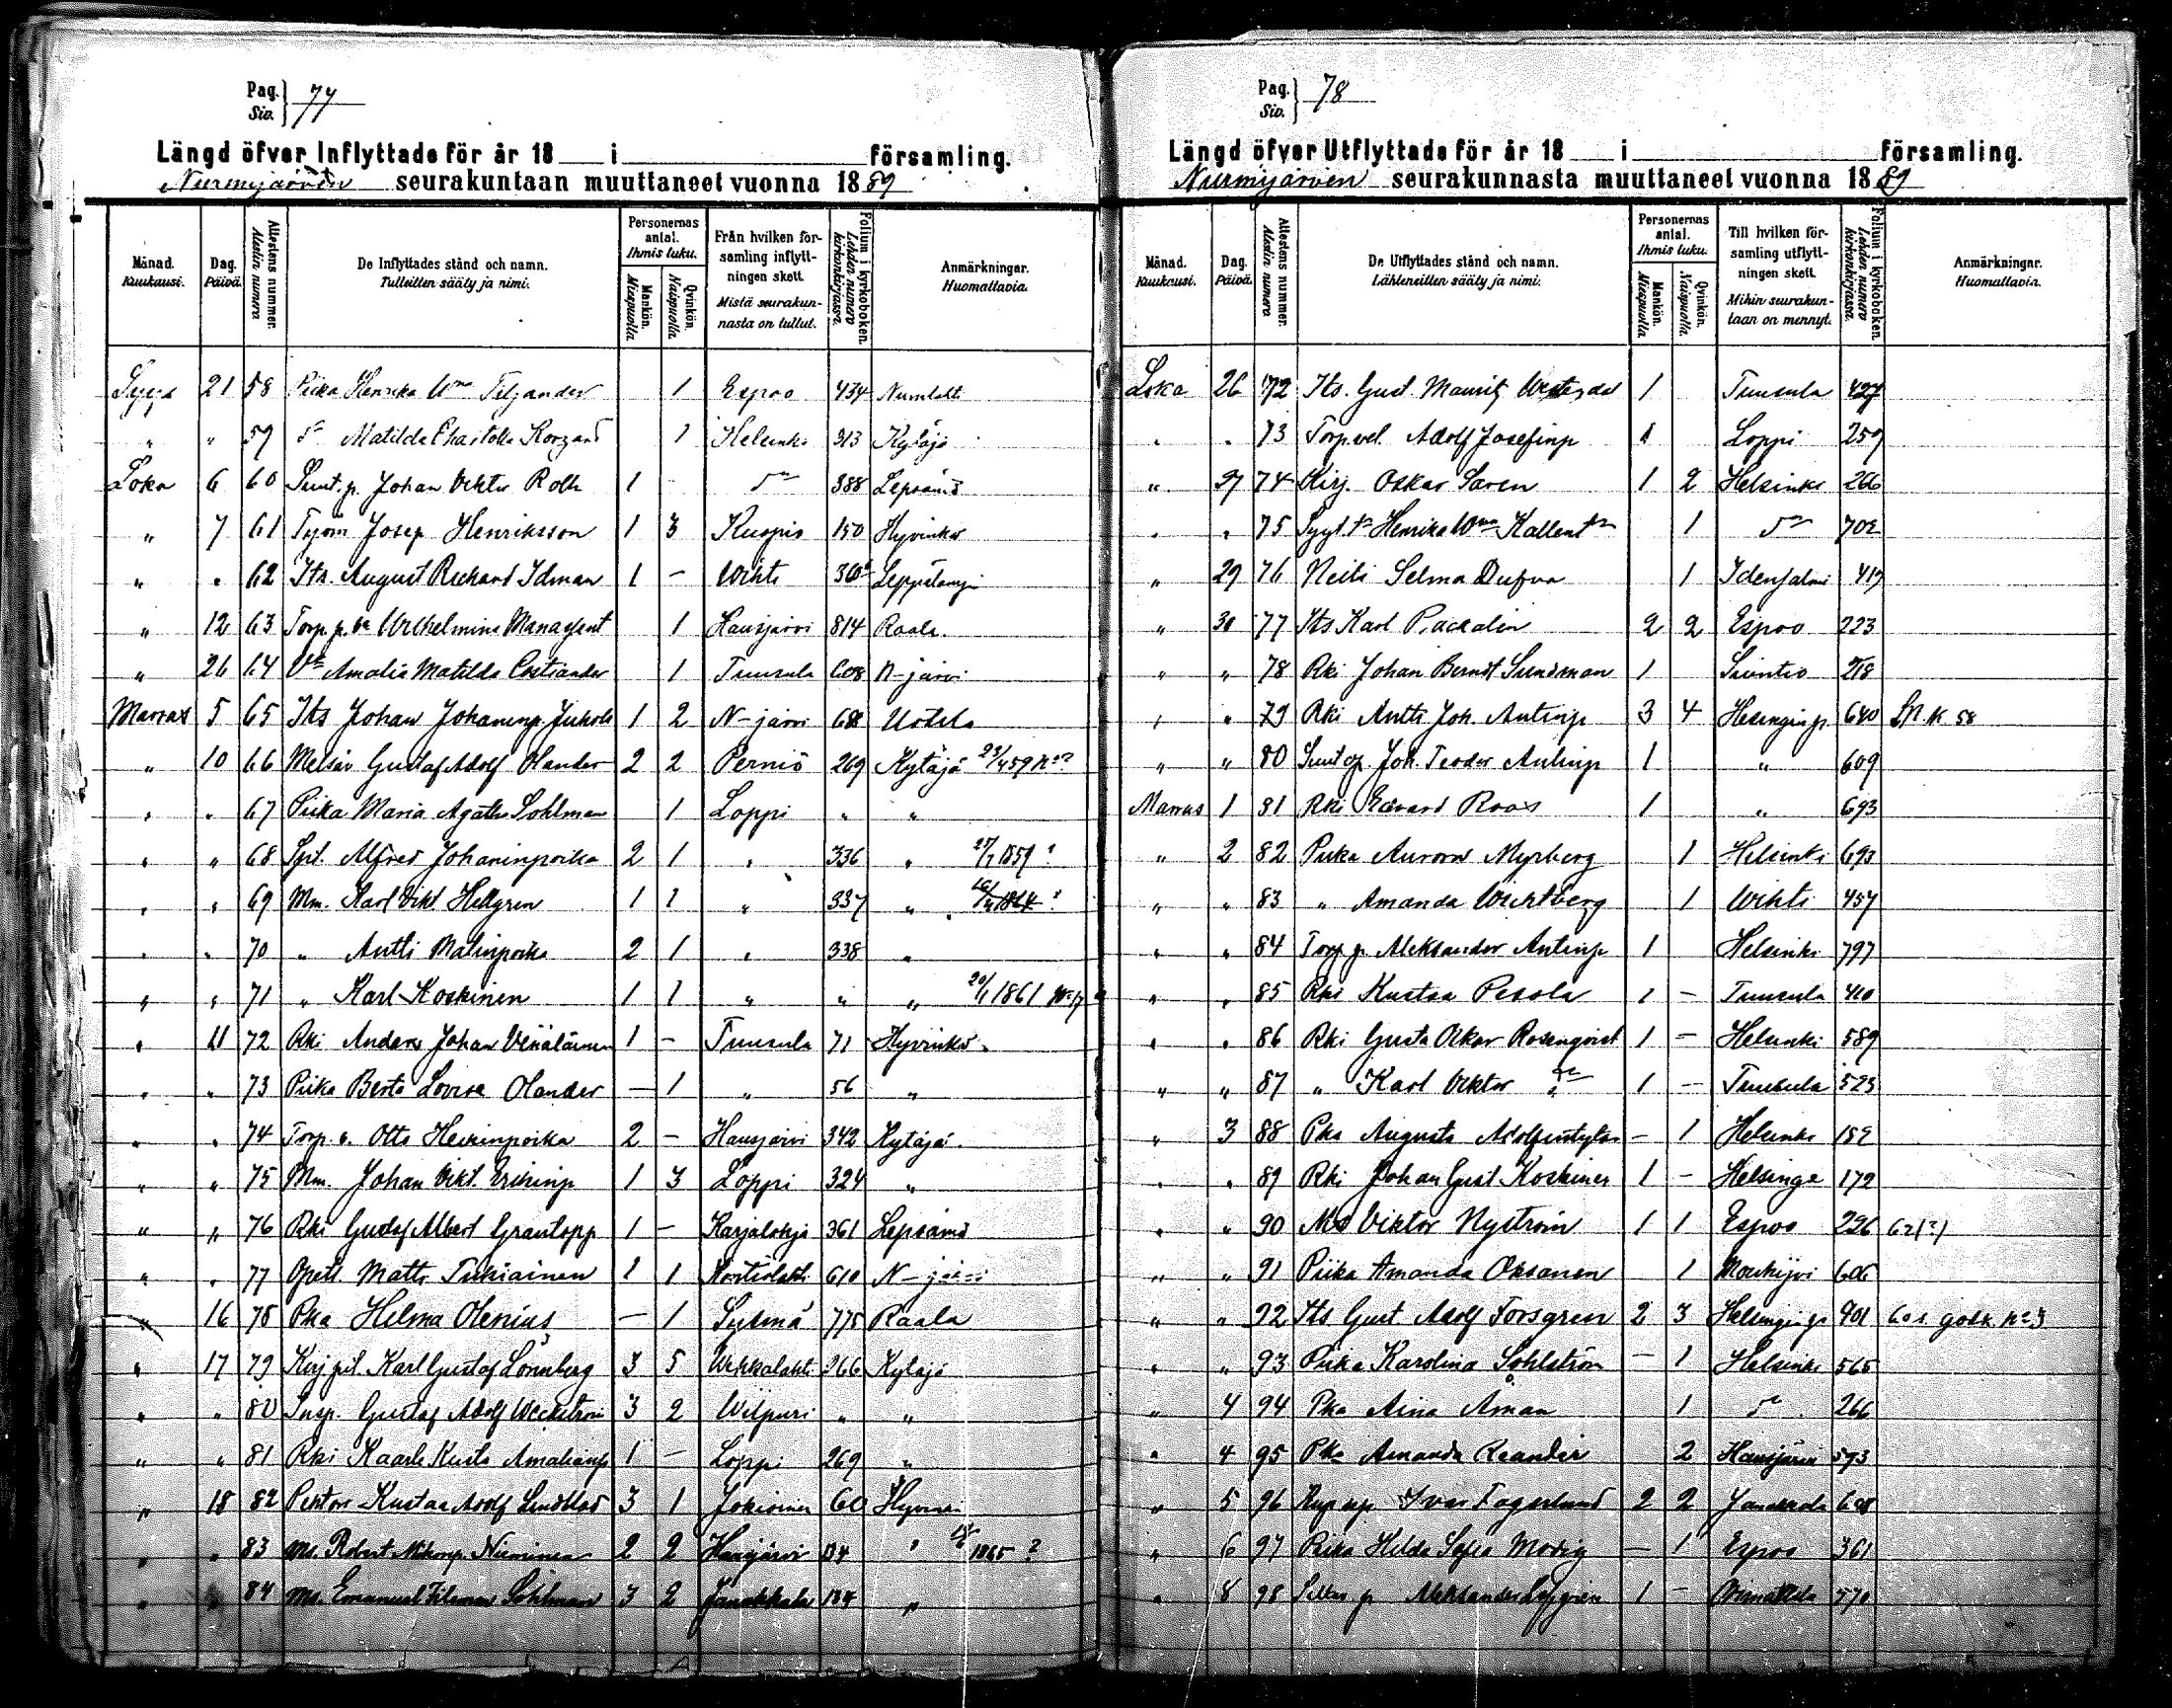 Pag. Siv. 77
Längd öfver Inflyttade för år 18 i församling.
Nurmijärven seurakuntaan muuttaneet vuonna 1889
Månad. Kuukausi.
Dag. Päivä.
Attestens nummer. Alestin numero
De Inflyttades stånd och namn. Tulleitten sääty ja nimi.
Personernas antal. Ihmis luku.
Mankön. Miespuolia
Qvinkön. Naispuolia
Från hvilken församling inflyttningen skett. Mistä seurakunnasta on tullut.
Folium i kyrkoboken. Lehden numero kirkonkirjassa.
Anmärkningar. Huomattavia.
Syys 21 58 Piika Henrika Wma Tiljander 1 Espoo 434
" " 59 do Matilda 1 Helsinki 313 Kytäjä
Loka 6 60 Johan Viktor Roth 1 do 388 Lepsämä
" 7 61 Työm Josep Henriksson 1 3 Kuopio 150 Hyvinkä
" " 62 Its. August Rickard Idman 1 - Wihti 360
" 12 63 Torp. Wilhelmina 1 Hausjärvi 814 Raala
" 26 64 Amalia Matilda 1 Tuusula 608 N-järvi
Marras 5 65 Its Johan 1 2 N-järvi Uotila
" 10 66 Gustaf Adolf Olander 2 2 Perniö 269 Kytäjä
" " 67 Piika Maria Agatha Sohlman 1 Loppi " "
" " 68 Alfred Johaninpoika 2 1 " 336 "
" " 69 Mm. Karl Vikt Hellgren 1 1 " 337 "
" " 70 " Antti Matinpoika 2 1 " 338 "
" " 71 " Karl Koskinen 1 1 " " " 20/1 1861
" 11 72 Rki Anders Johan 1 - Tuusula 71 Hyvinkä
" " 73 Piika Berta Lovisa Olander - 1 " 56 "
" " 74 Torp. Otto Heikinpoika 2 - Hausjärvi 342 Kytäjä
" " 75 Mm. Johan Vikt. Erikinp 1 3 Loppi 324 "
" " 76 Rki Gustaf Albert 1 - Karjalohja 361 Lepsämä
" " 77 Matti Tukiainen 1 1 Kontiolahti 610 N-järvi
" 16 78 Pka Helma Olenius - 1 Sysmä 775 Raala
" 17 79 Karl Gustaf Lönnberg 3 5 Wehkalahti 266 Kytäjä
" " 80 Insp. Gustaf Adolf Weckström 3 2 Wiipuri " "
" " 81 Rki Kaarle Kusta 1 - Loppi 269 "
" 18 82 Kustaa Adolf Lindblad 3 1 Jokioinen 60
" " 83 Ms. Robert Nieminen 2 2 Hausjärvi 134 " 1865 ?
" " 84 Ms. Emanuel Sohlman 3 2 Janakkala 134 "
Pag. Siv. 78
Längd öfver Utflyttade för år 18 i församling.
Nurmijärven seurakunnasta muuttaneet vuonna 1889
Månad. Kuukausi.
Dag. Päivä.
Attestens nummer. Alestin numero
De Utflyttades stånd och namn. Lähteneitten sääty ja nimi.
Personernas antal. Ihmis luku.
Mankön. Miespuolia
Qvinkön. Naispuolia
Till hvilken församling utflyttningen skett. Mihin seurakuntaan on mennyt.
Folium i kyrkoboken. Lehden numero kirkonkirjassa.
Anmärkningar. Huomattavia.
Loka 26 72 Its. Gust Maurits 1 Tuusula 427
" " 73 Torp.vel. Adolf Josefinp 1 Loppi 259
" 27 74 Kirj. Oskar Saren 1 2 Helsinki 266
" " 75 Henrika Wma 1 do 702
" 29 76 Neiti Selma Dufva 1 Idensalmi 417
" 30 77 Its Karl Packalin 2 2 Espoo 223
" " 78 Rki Johan Berndt Sundman 1 Siuntio 218
" " 79 Rki Antti Joh. Antinp 3 4 Helsingin p. 640
" " 80 Joh. Teodor Antinp 1 " 609
Marras 1 81 Rki Edvard Roos 1 " 693
" 2 82 Piika Aurora Myrberg 1 Helsinki 693
" " 83 " Amanda Wichtberg 1 Wihti 457
" " 84 Torp p. Aleksander Antinp 1 Helsinki 797
" " 85 Rki Kustaa Pesola 1 - Tuusula 410
" " 86 Rki Gusta Oskar Rosenqvist 1 - Helsinki 589
" " 87 " Karl Viktor do 1 - Tuusula 523
" 3 88 Pka Augusta Adolfintytär - 1 Helsinki 152
" " 89 Rki Johan Gust Koskinen 1 - Helsinge 172
" " 90 Ms Viktor Nyström 1 1 Espoo 226 62(?)
" " 91 Piika Amanda Oksanen 1 Mouhijrvi 606
" " 92 Its Gust Adolf Forsgren 2 3 Helsingin p. 901
" " 93 Piika Karolina Sohlström - 1 Helsinki 565
" 4 94 Pka Aina Åman 1 do 266
" 4 95 Pka Amanda Reander 2 Hausjärvi 593
" 5 96 Ivar Fagerlund 2 2 Janakkala
" 6 97 Piika Hilda Sofia Modig - 1 Espoo 361
" 8 98 Aleksander Löfgren 1 - Orimattila 570